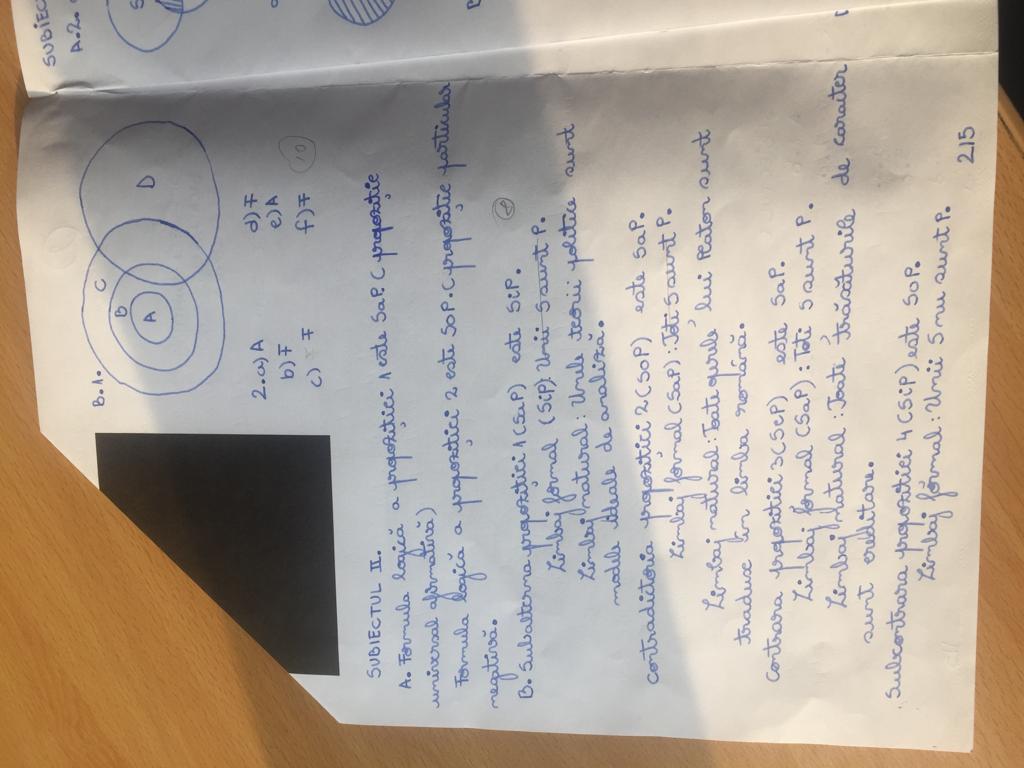 SUBIECTUL
A.2.
S
B.1.
A
B
C
D
2.a)A
b)F
c)F
d)F
e)A
f)F
10
SUBIECTUL II.
A. Formula logică a propoziției 1 este SaP. (propoziție
universal afirmativă)
Formula logică a propoziției 2 este SoP. (propoziție particula
negativă.
B. Subalterna propoziției 1 (SaP) este SiP.
Limbaj formal (SiP): Unii S sunt P.
Limbaj natural: Unele teorii politice sunt
modele ideale de analiză.
contradictoria propoziției 2 (SoP) este SaP.
Limbaj formal (SaP): Toti S sunt P.
Limbaj natural: Toate operele lui Platon sunt
traduse în limba română.
Contrara propoziției 3 (SeP) este SaP.
Limbaj formal (SaP): Toti S sunt P.
Limbaj natural: Toate trăsăturile de caracter
sunt ereditare.
Subcontrara propoziției 4 (SiP) este SoP.
Limbaj formal: Unii S nu sunt P.
2|5